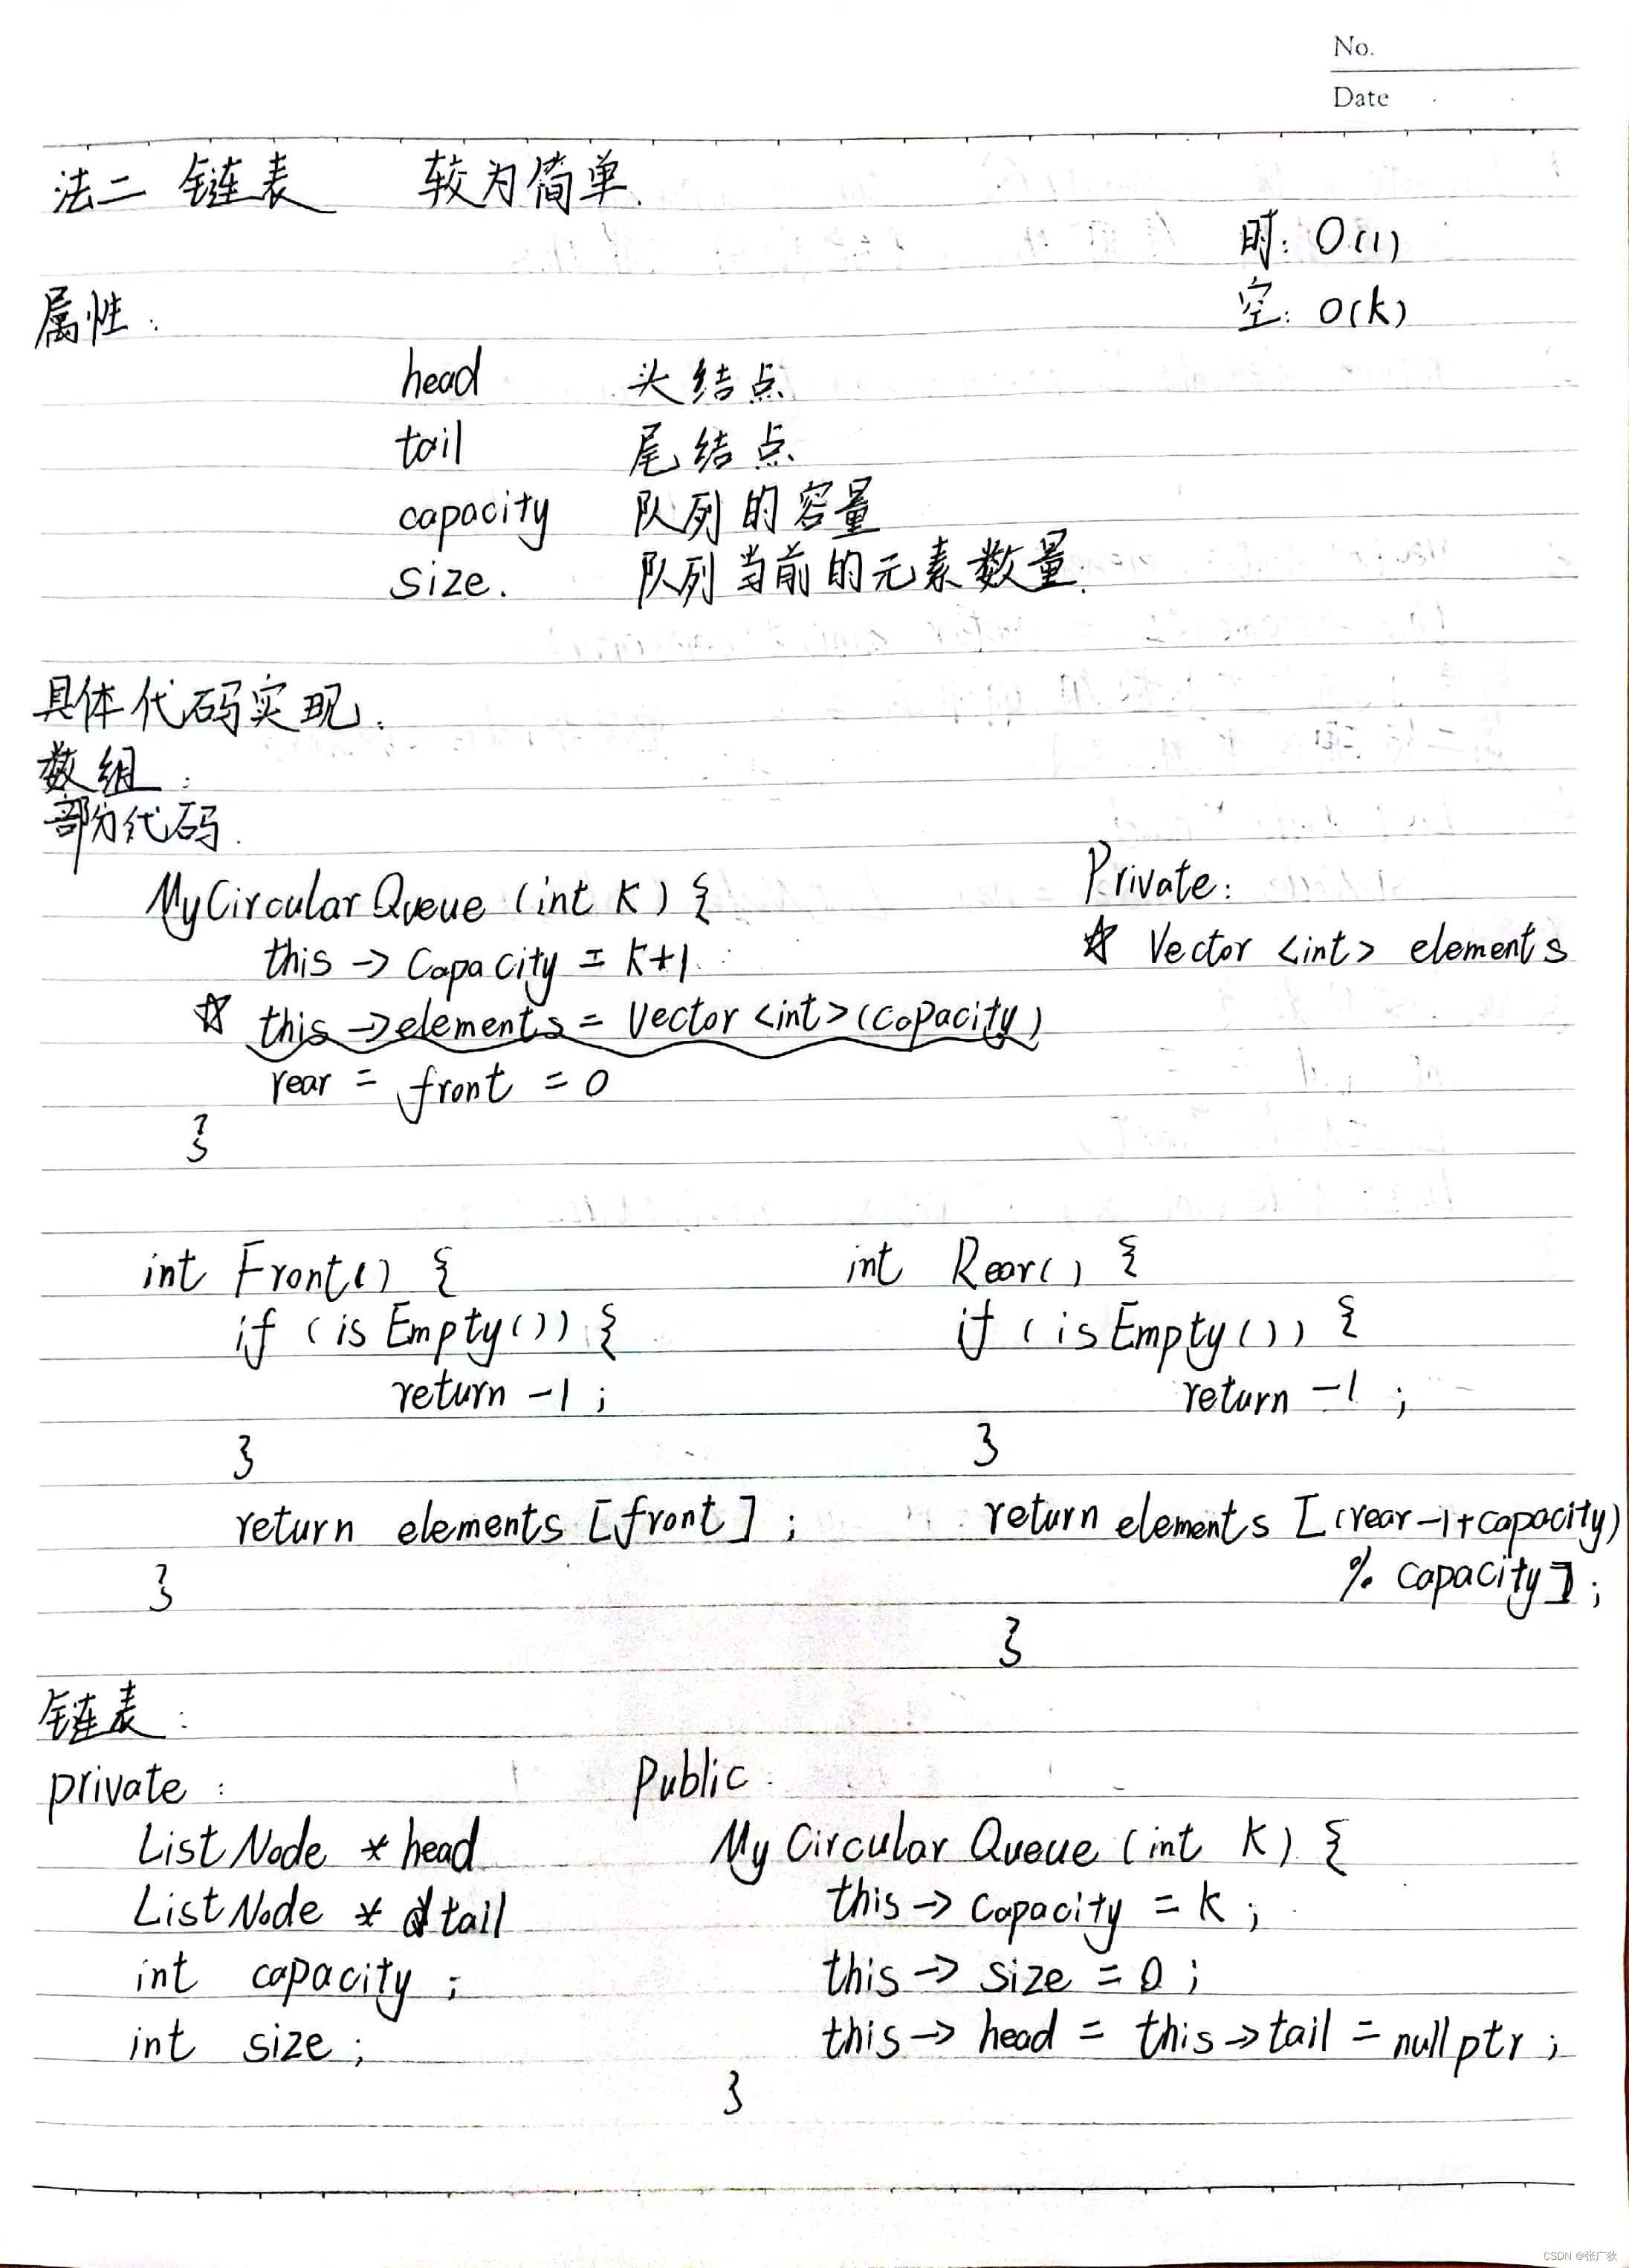 No.
Date
法二 链表 较为简单.
时: O(1)
空: O(k)
属性:
head 头结点
tail 尾结点
capacity 队列的容量
size. 队列当前的元素数量.
具体代码实现.
数组:
部分代码.
MyCircularQueue (int k) {
this -> Capacity = k+1.
☆ this -> elements = Vector <int> (capacity)
rear = front = 0
}
Private:
☆ Vector <int> elements
int Front() {
if (isEmpty()) {
return -1 ;
}
return elements [front] ;
}
int Rear() {
if (isEmpty()) {
return -1 ;
}
return elements [(rear-1+capacity)
% capacity] ;
}
链表:
private:
ListNode * head
ListNode * tail
int capacity ;
int size ;
Public:
MyCircularQueue (int k) {
this -> Capacity = k ;
this -> size = 0 ;
this -> head = this -> tail = nullptr ;
}
CSDN @张广狄